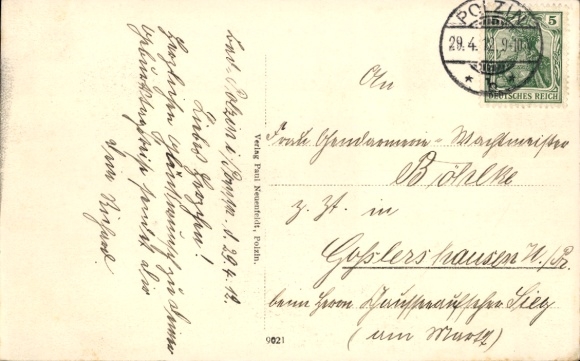 Bad-Polzin i/Pomm. d. 29.4.12.
Liebes Herzchen!
Herzlichen Glückwunsch zu Deinem
Geburtstag sendet dir
Dein Richard.
Verlag Paul Neuenfeldt, Polzin.
9021
POLZIN
29.4.12. 9-10
* b *
5
DEUTSCHES REICH
An
Frau Gendarmerie-Wachtmeister
Böhlke
z. Zt. in
Gosslershausen W./Pr.
beim Herrn Chausseeaufseher Sieg
(am Markt)